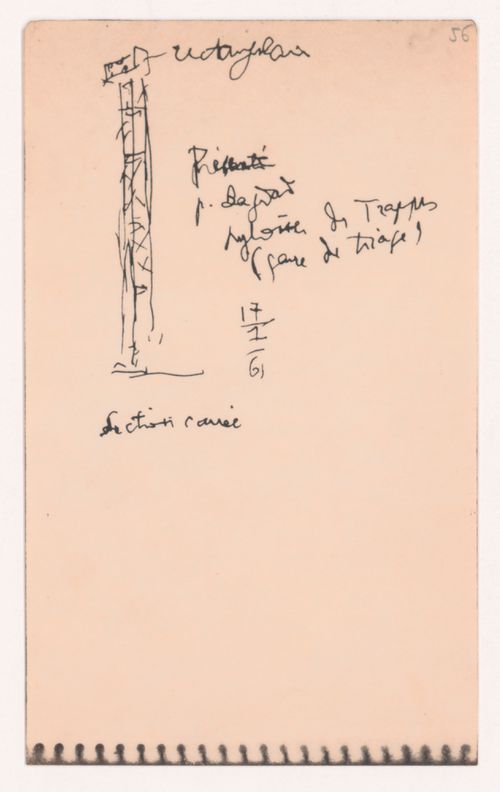 56
rectangulaire
Présenté
p. Bagdad
pylônes de Trappes
(gare de triage)
17
1
61
Section carrée